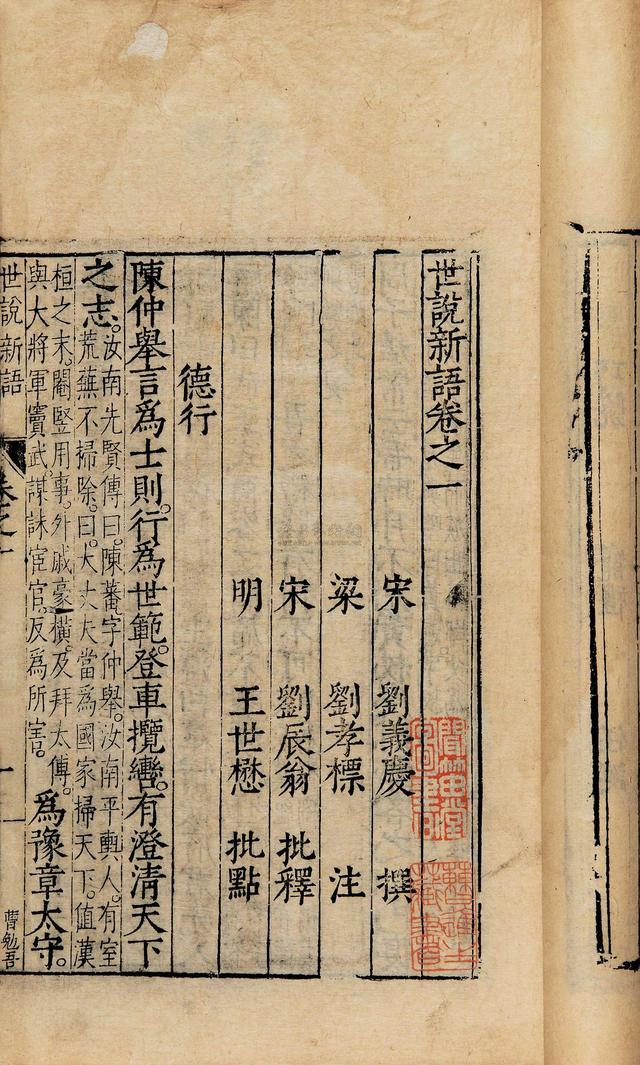 世說新語卷之一
宋 劉義慶 撰
梁 劉孝標 注
宋 劉辰翁 批釋
明 王世懋 批點
德行
陳仲舉言爲士則。行爲世範。登車攬轡。有澄清天下
之志。
汝南先賢傳曰。陳蕃字仲舉。汝南平輿人。有室
荒蕪不掃除。曰。大丈夫當爲國家掃天下。值漢
桓之末。閹豎用事。外戚豪橫。及拜太傅。
與大將軍竇武。謀誅宦官。反爲所害。
爲豫章太守。
世說新語
卷之一
一
曹勉吾